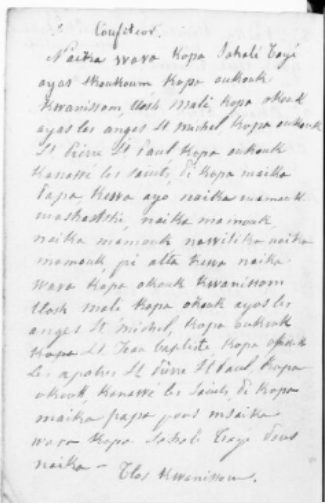 Confiteor.
Naika wawa kopa Sahalé Tayé
ayas skoukoum kopa oukouk
kwanissom, tlosh Mali, kopa okouk
ayas les anges St Michel, kopa oukouk
St Pierre St Paul kopa oukouk
kanawé les saints, é kopa maika
papa, kewa ayo naika mamouk
mashatshi, naika mamouk,
naika mamouk naika
mamouk, pi alta kewa naika
wawa kopa okouk kwanissom
tlosh mali kopa okouk ayos les
anges St Michel, kopa oukouk
kopa St Jean baptiste, kopa okouk
les apotres St Pierre St Paul, kopa
okouk kanawé les Saints, é kopa
maika papa pous msaika
wawa kopa Sahalé Tayé
naika — Tlos kwanissom.